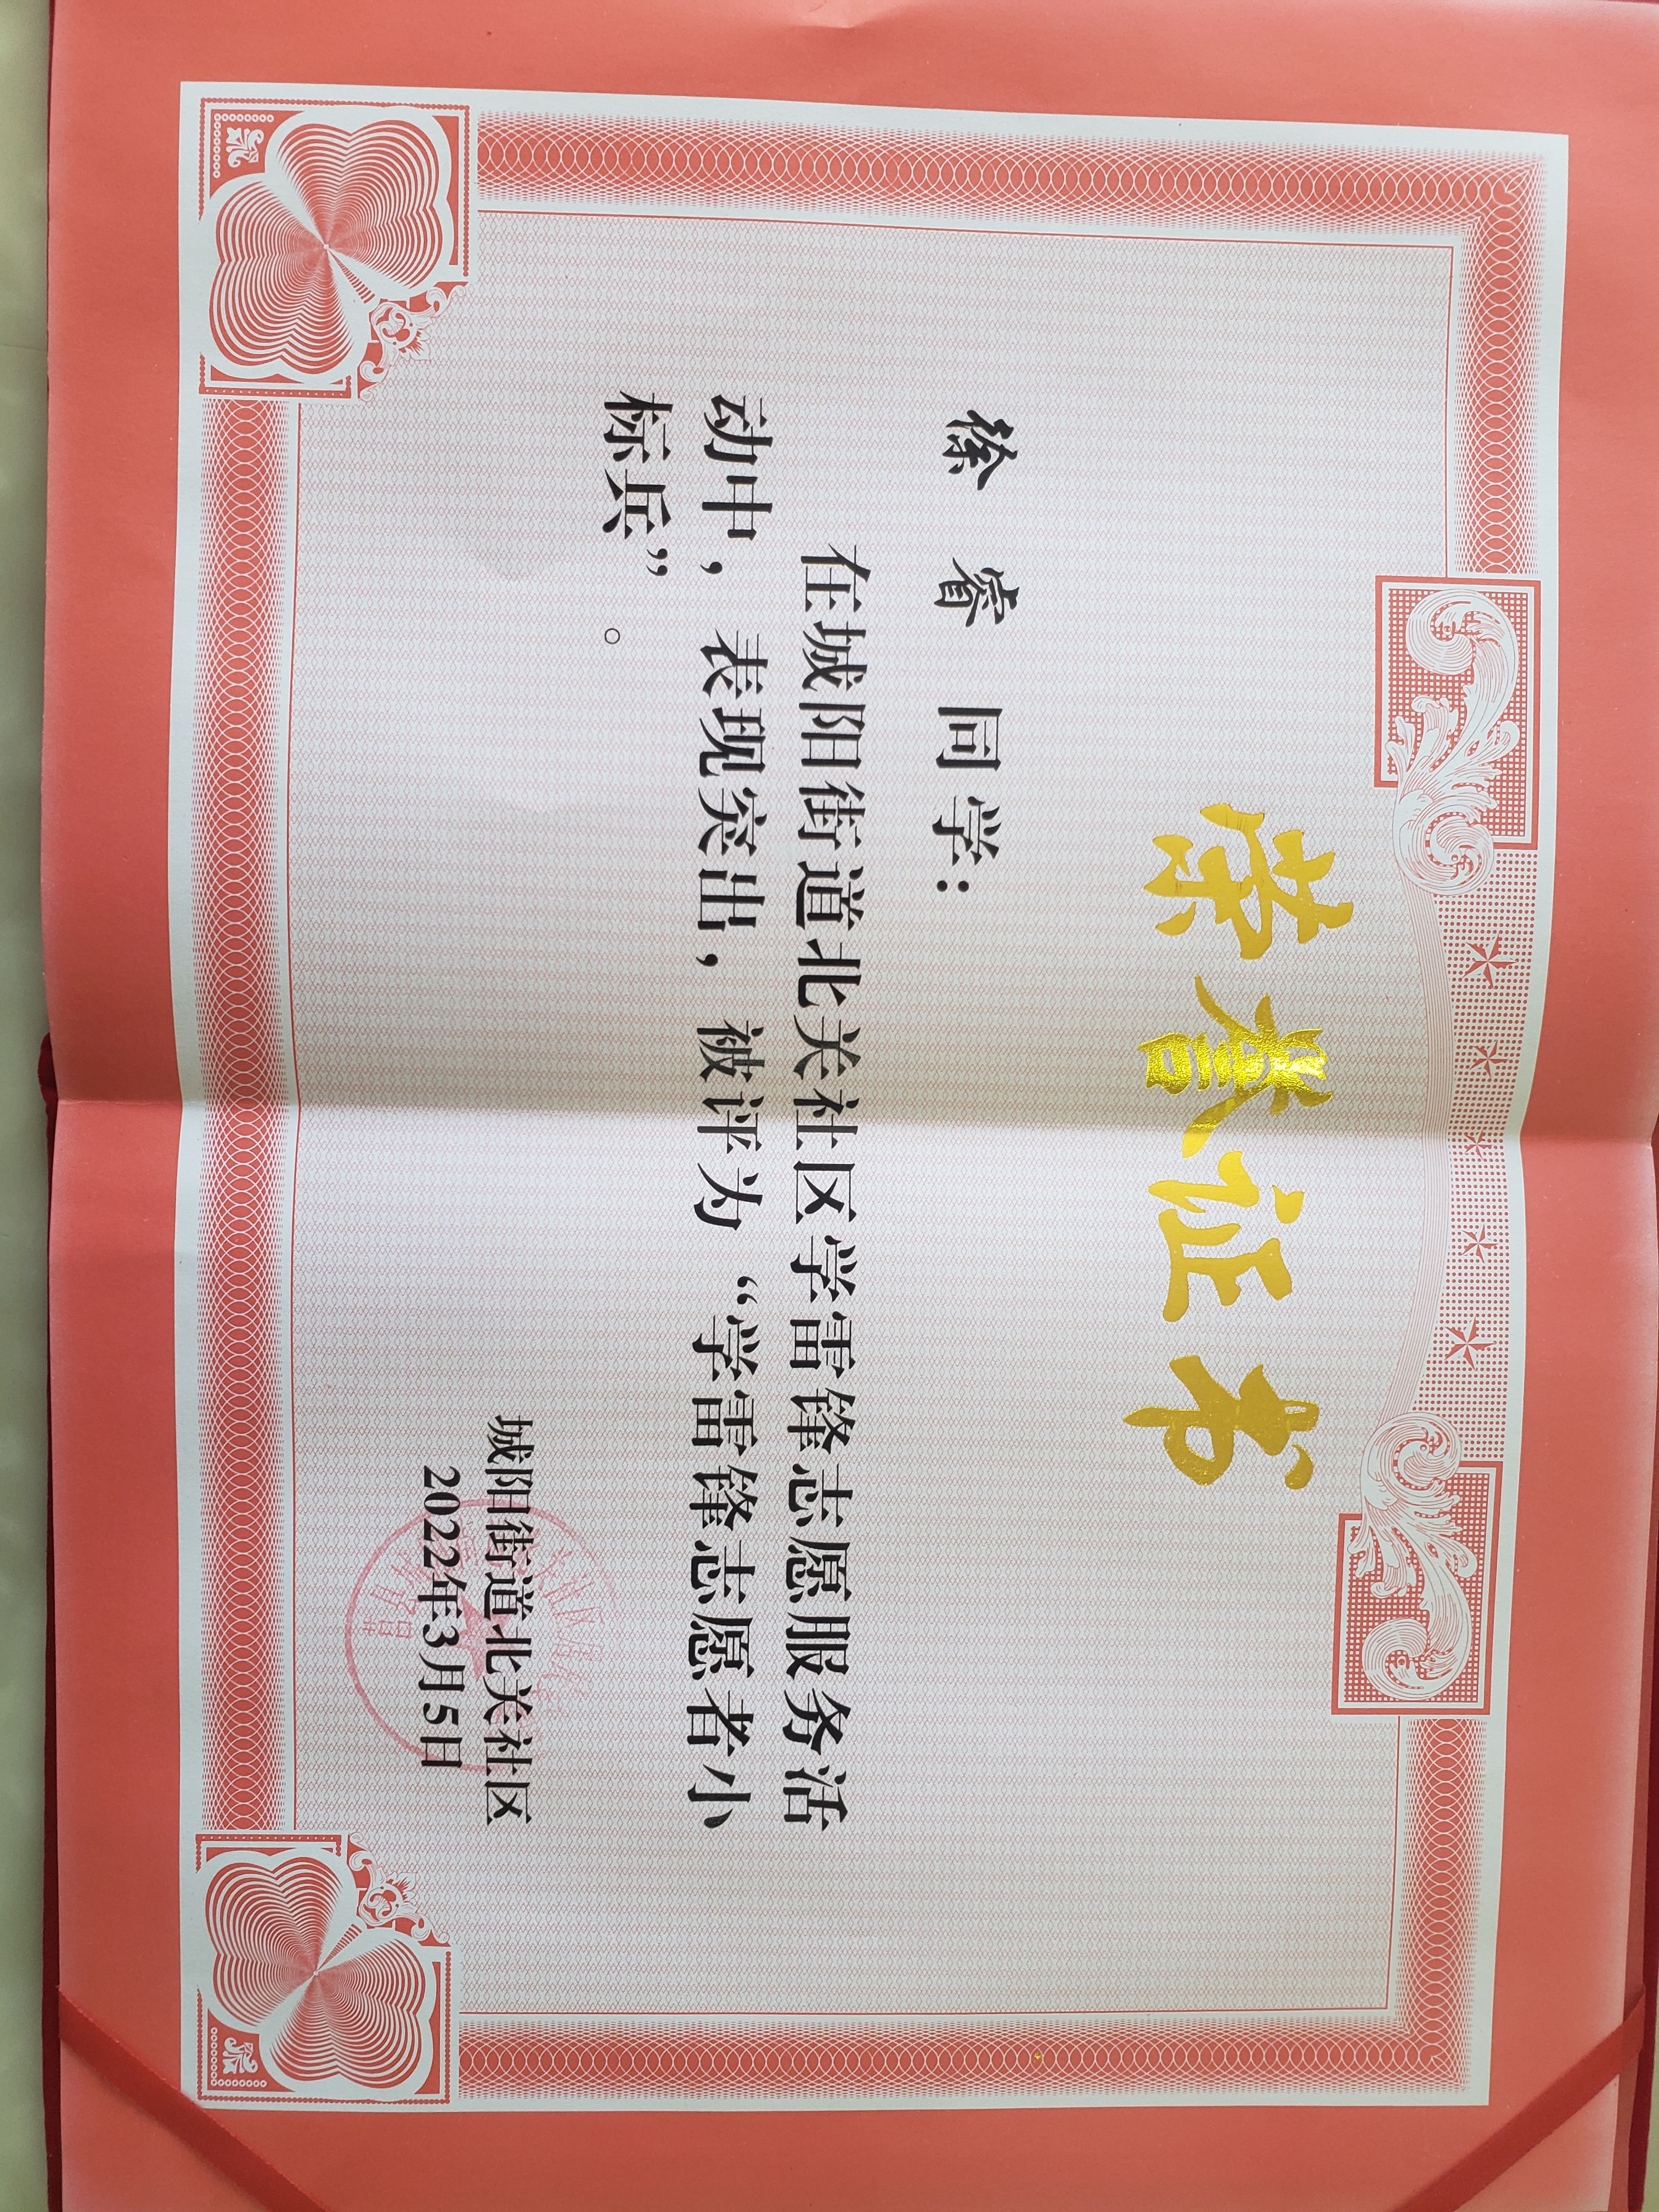 荣誉证书
徐 睿 同学：
在城阳街道北关社区学雷锋志愿服务活
动中，表现突出，被评为“学雷锋志愿者小
标兵”。
城阳街道北关社区
2022年3月5日